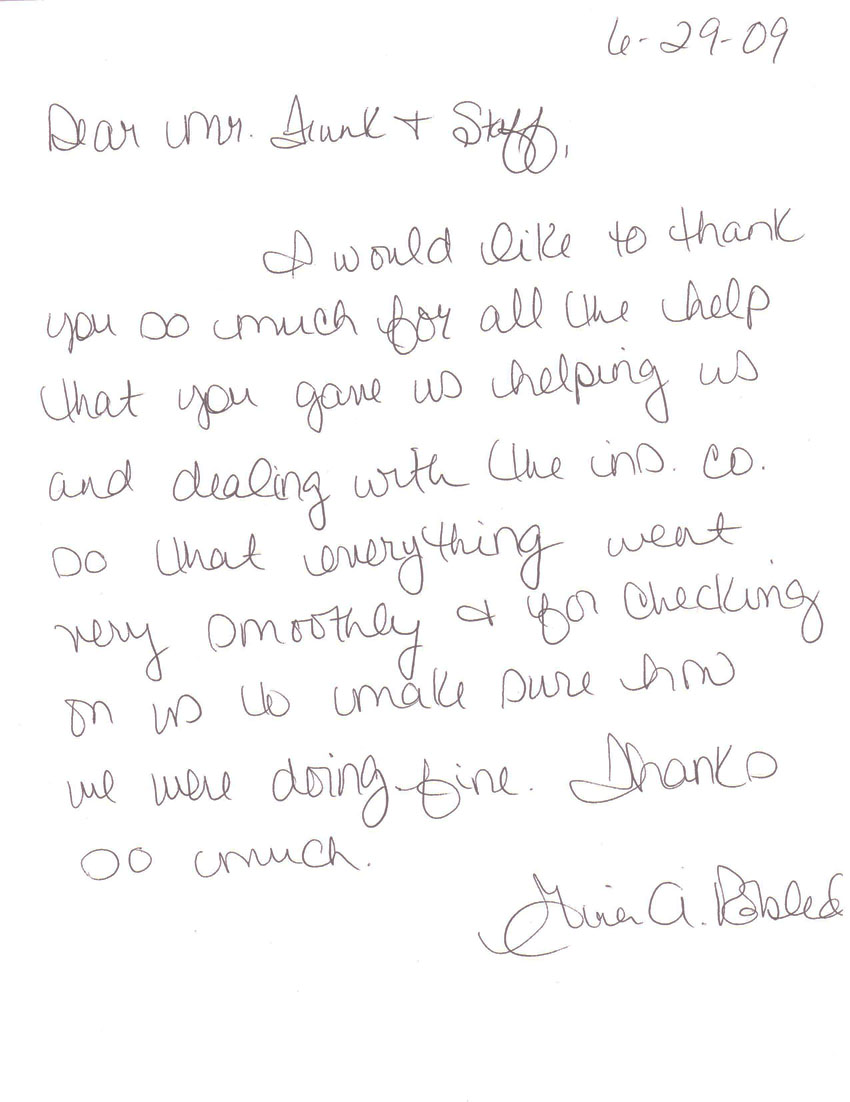 6-29-09
Dear Mr. Frank + Staff,
I would like to thank
you so much for all the help
that you gave us helping us
and dealing with the ins. co.
so that everything went
very smoothly & for checking
on us to make sure how
we were doing fine. Thanks
so much.
A.